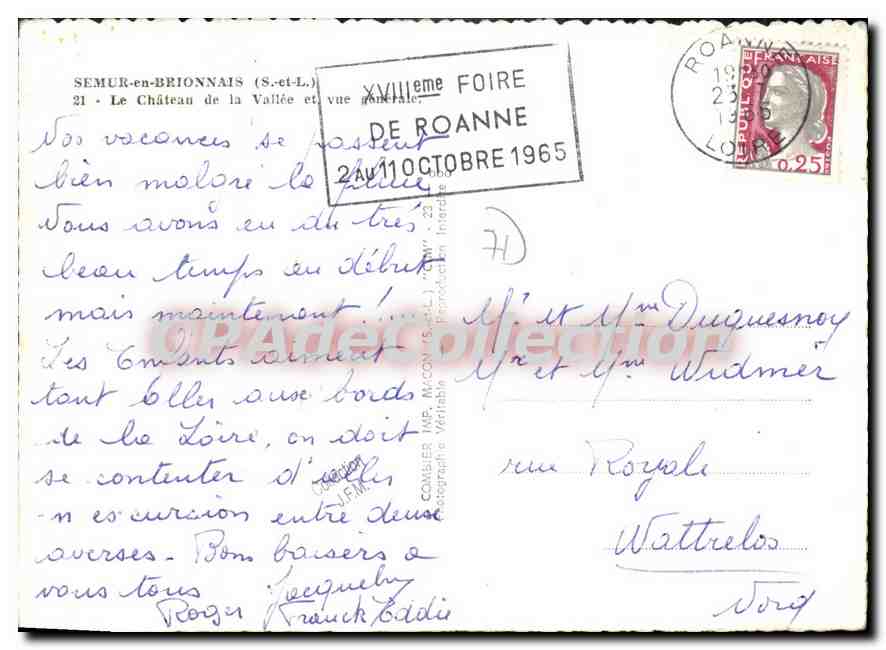 SEMUR-en-BRIONNAIS (S.-et-L.)
21 - Le Château de la Vallée et vue générale.
Nos vacances se passent
bien malgré la pluie
Nous avons eu du très
beau temps au début
mais maintenant !....
Les Enfants aiment
tant aller aux bords
de la Loire, on doit
se contenter d'aller
en escursion entre deux
averses - Bons baisers a
vous tous Jacqueline
Roger Franck Eddie
XVIIIeme FOIRE
DE ROANNE
2 AU 11 OCTOBRE 1965
ROANNE
23
1965
LOIRE
REPUBLIQUE FRANÇAISE
POSTES
0,25
71
COMBIER IMP. MACON (S.-et-L.) "CIM"
Photographie Véritable Reproduction Interdite
Mr et Mme Duquesnoy
Mr et Mme Widmer
rue Royale
Wattrelos
Nord
CPAdeCollection
Collection
J.F.M.